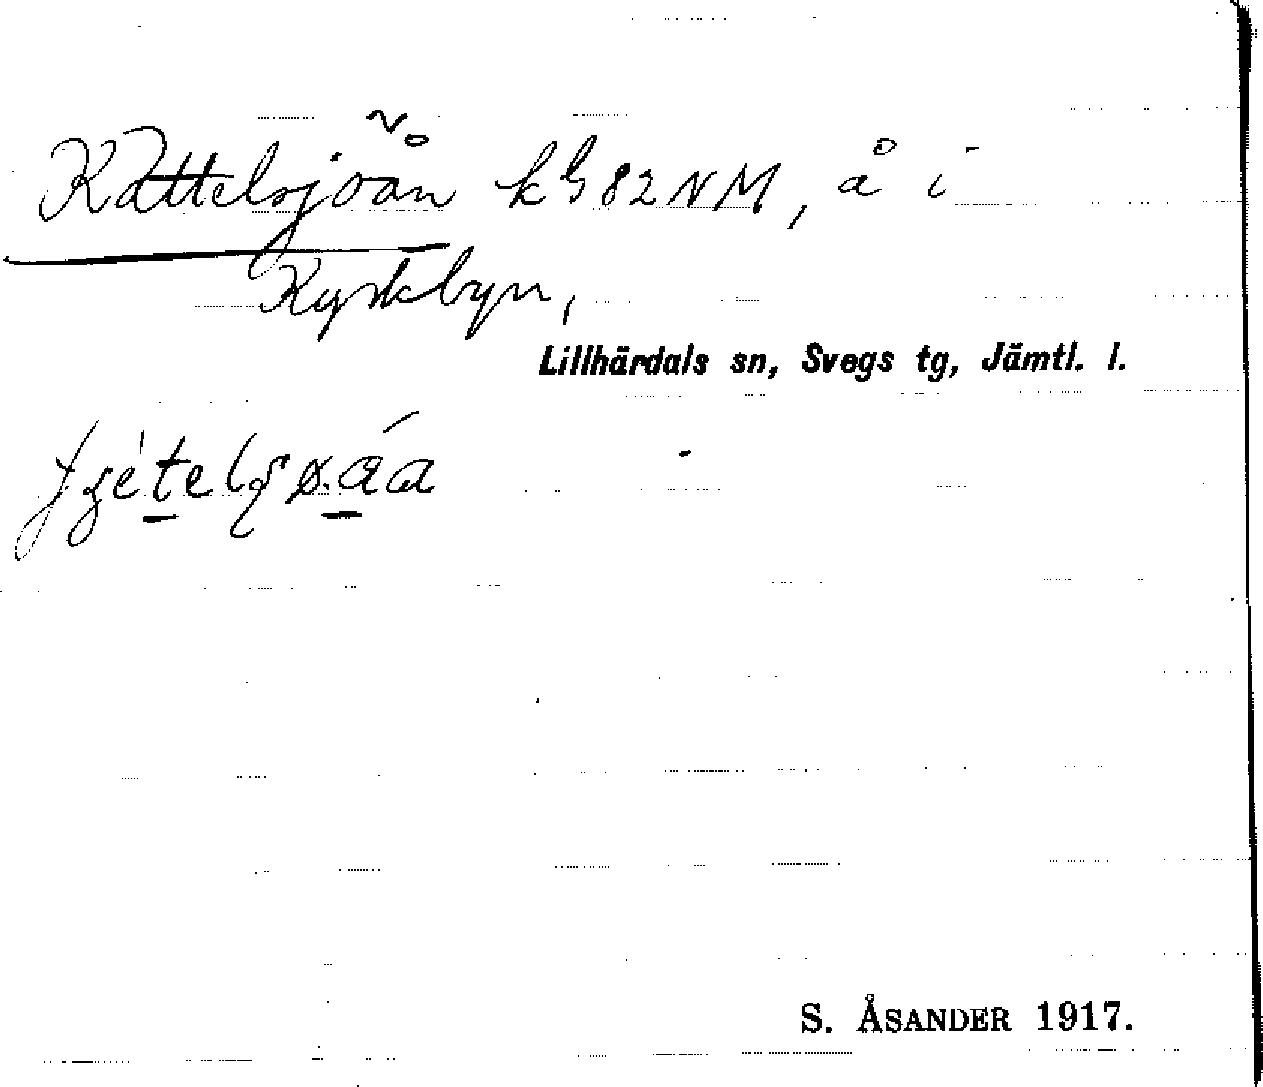 Kattelsjöån kG82NM, å i
Kyrkbyn,
Lillhärdals sn, Svegs tg, Jämtl. l.
S. ÅSANDER 1917.